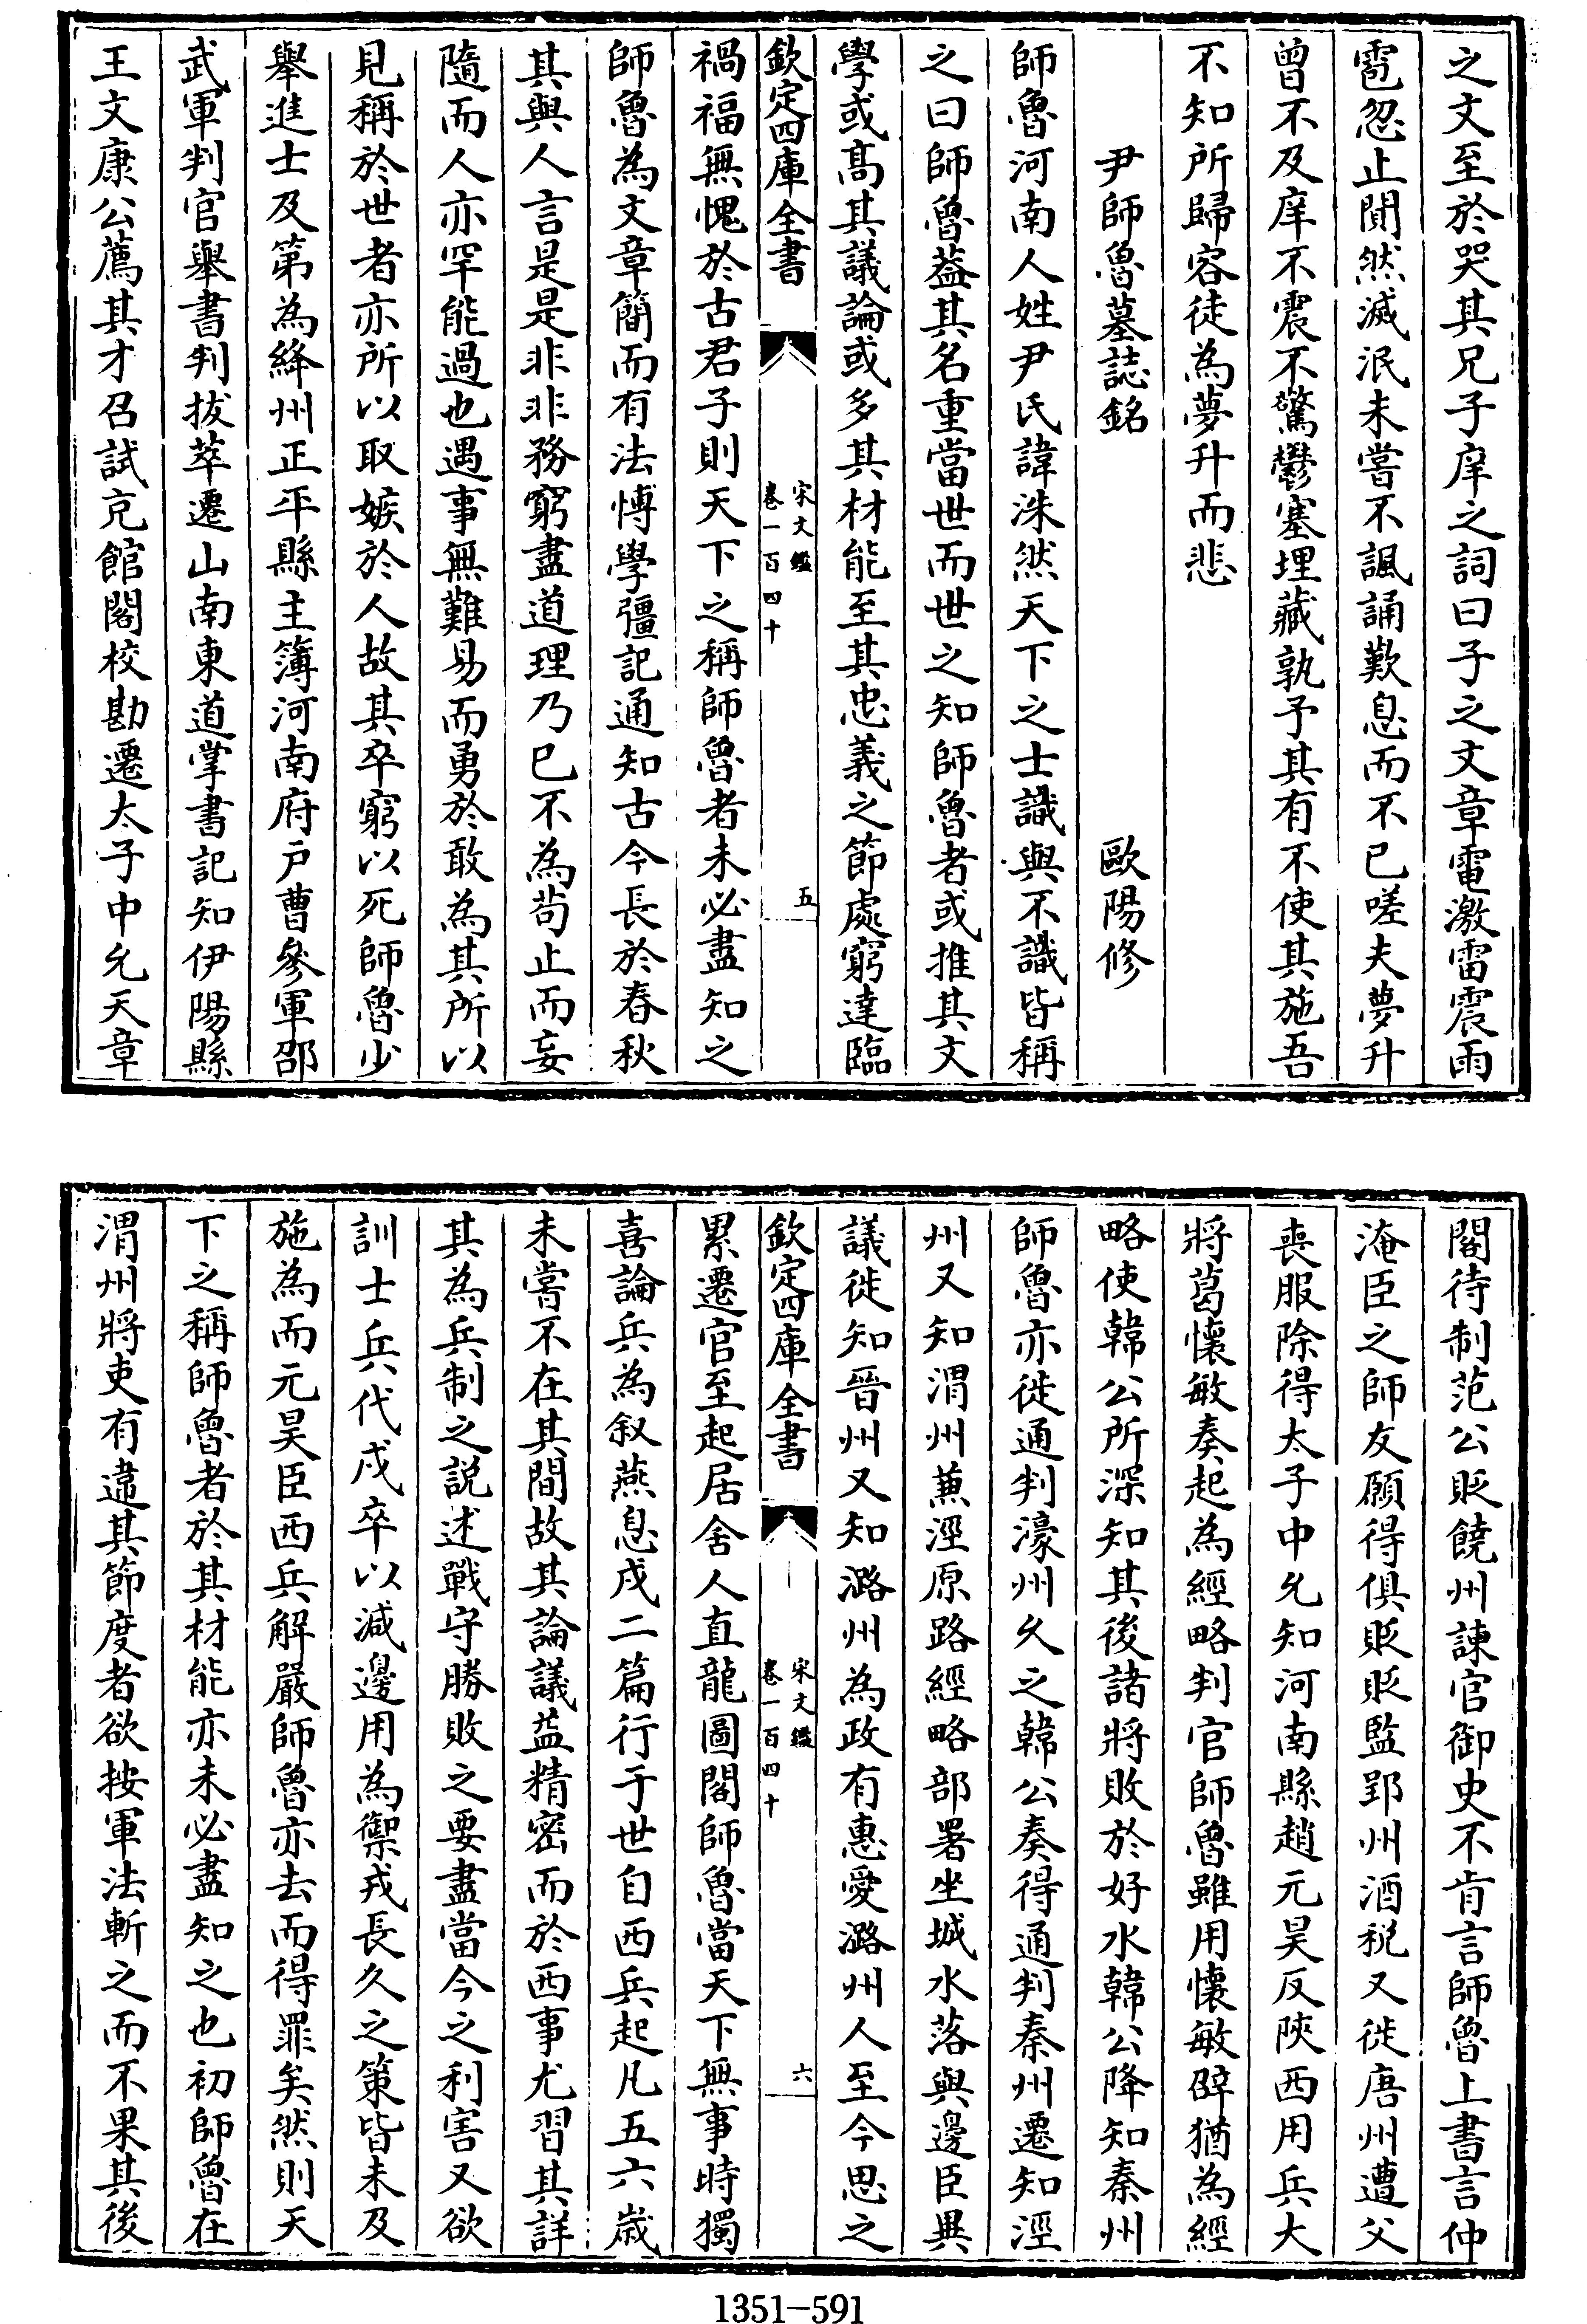 之文至於哭其兄子庠之詞曰子之文章電激雷震雨
雹忽止闃然滅泯未嘗不諷誦歎息而不已嗟夫夢升
曾不及庠不震不驚鬱塞埋藏孰予其有不使其施吾
不知所歸容徒為夢升而悲
尹師魯墓誌銘 歐陽修
師魯河南人姓尹氏諱洙然天下之士識與不識皆稱
之曰師魯葢其名重當世而世之知師魯者或推其文
學或髙其議論或多其材能至其忠義之節處窮達臨
欽定四庫全書
宋文鑑
卷一百四十
五
禍福無愧於古君子則天下之稱師魯者未必盡知之
師魯為文章簡而有法博學彊記通知古今長於春秋
其與人言是是非非務窮盡道理乃已不為茍止而妄
隨而人亦罕能過也遇事無難易而勇於敢為其所以
見稱於世者亦所以取嫉於人故其卒窮以死師魯少
舉進士及第為絳州正平縣主簿河南府户曹參軍邵
武軍判官舉書判拔萃遷山南東道掌書記知伊陽縣
王文康公薦其才召試充館閣校勘遷太子中允天章
閣待制范公貶饒州諫官御史不肯言師魯上書言仲
淹臣之師友願得俱貶貶監郢州酒税又徙唐州遭父
喪服除得太子中允知河南縣趙元昊反陜西用兵大
將葛懷敏奏起為經略判官師魯雖用懷敏辟猶為經
略使韓公所深知其後諸將敗於好水韓公降知秦州
師魯亦徙通判濠州久之韓公奏得通判秦州遷知涇
州又知渭州兼涇原路經略部署坐城水洛與邊臣異
議徙知晉州又知潞州為政有惠愛潞州人至今思之
欽定四庫全書
宋文鑑
卷一百四十
六
累遷官至起居舍人直龍圖閣師魯當天下無事時獨
喜論兵為叙燕息戍二篇行于世自西兵起凡五六嵗
未嘗不在其間故其論議益精密而於西事尤習其詳
其為兵制之說述戰守勝敗之要盡當今之利害又欲
訓士兵代戍卒以減邊用為禦戎長久之策皆未及
施為而元昊臣西兵解嚴師魯亦去而得罪矣然則天
下之稱師魯者於其材能亦未必盡知之也初師魯在
渭州將吏有違其節度者欲按軍法斬之而不果其後
1351—591